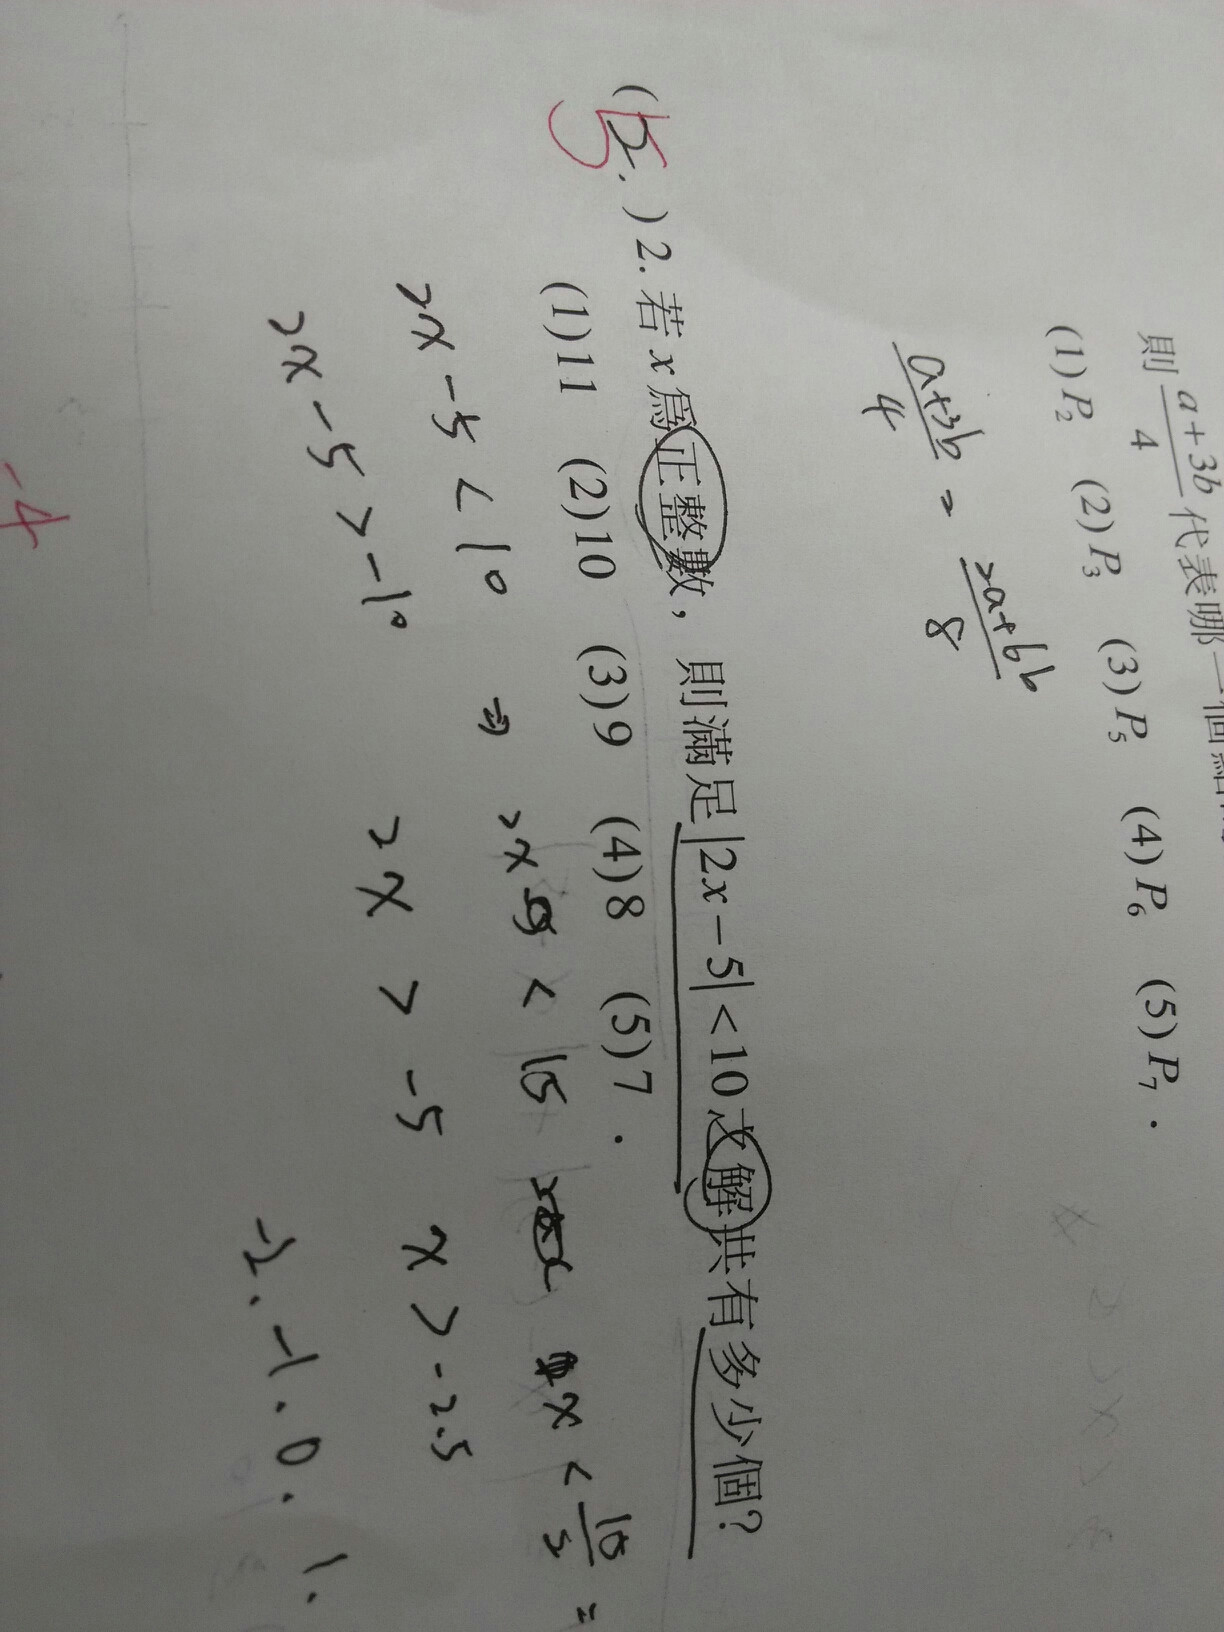 則 a+3b/4 代表哪一個
(1) P₂ (2) P₃ (3) P₅ (4) P₆ (5) P₇ .
a+3b/4 = 2a+6b/8
(2.) 2. 若 x 爲正整數, 則滿足|2x-5|<10之解共有多少個?
5
(1)11 (2)10 (3)9 (4)8 (5)7 .
2x-5<10 ⇒ 2x < 15 x < 15/2 =
2x-5>-10 2x > -5 x > -2.5
-2. -1. 0. 1.
-4